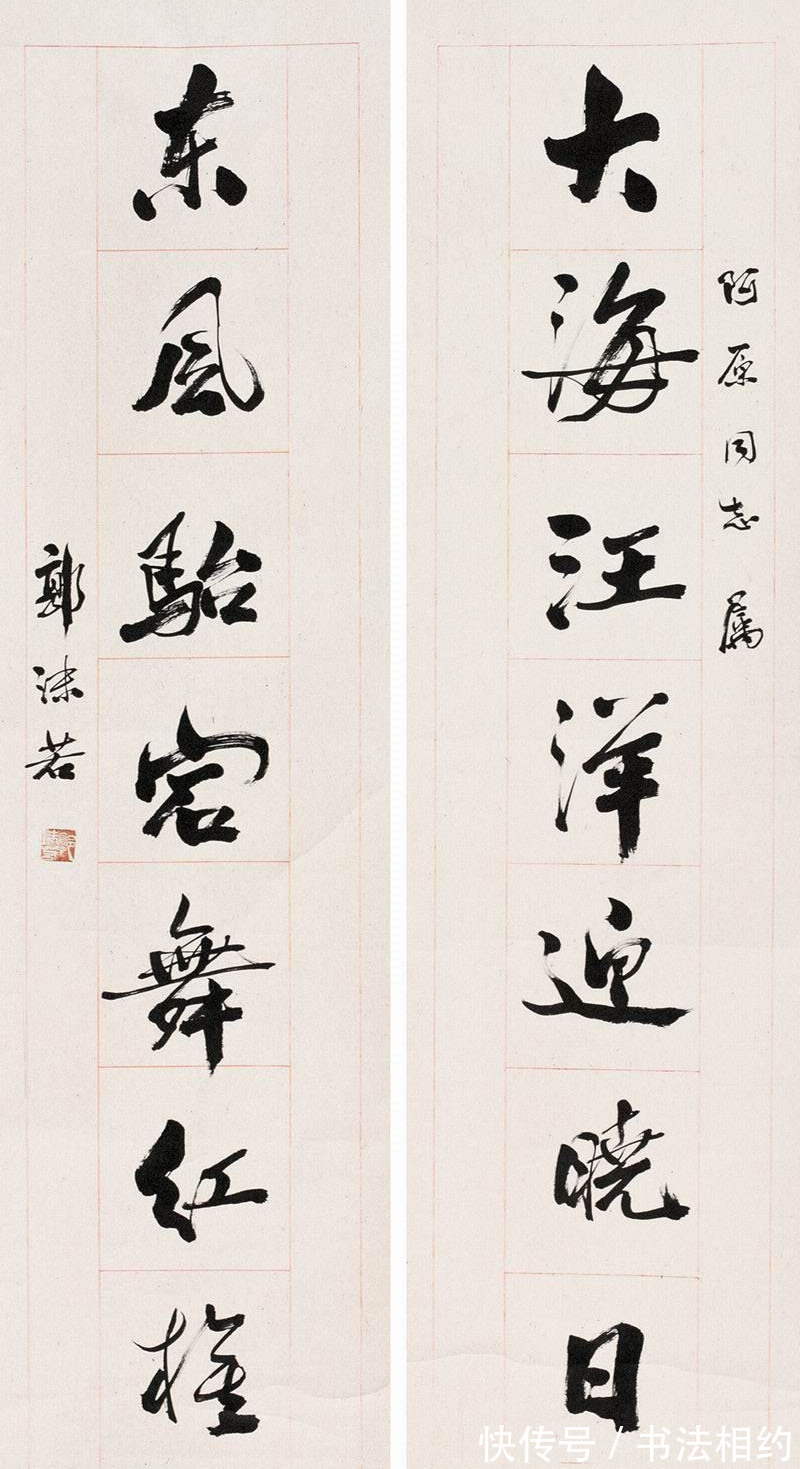 阿原同志属
大海汪洋迎晓日
东风駘宕舞红旌
郭沫若
快传号 / 书法相约